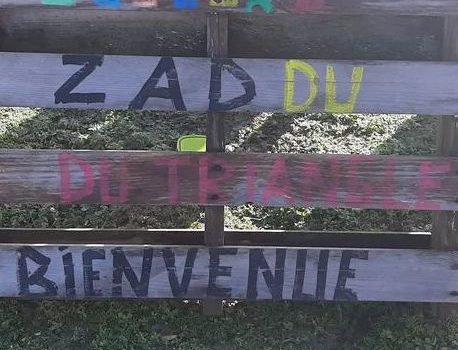 ZAD DU
DU TRIANGLE
BIENVENUE